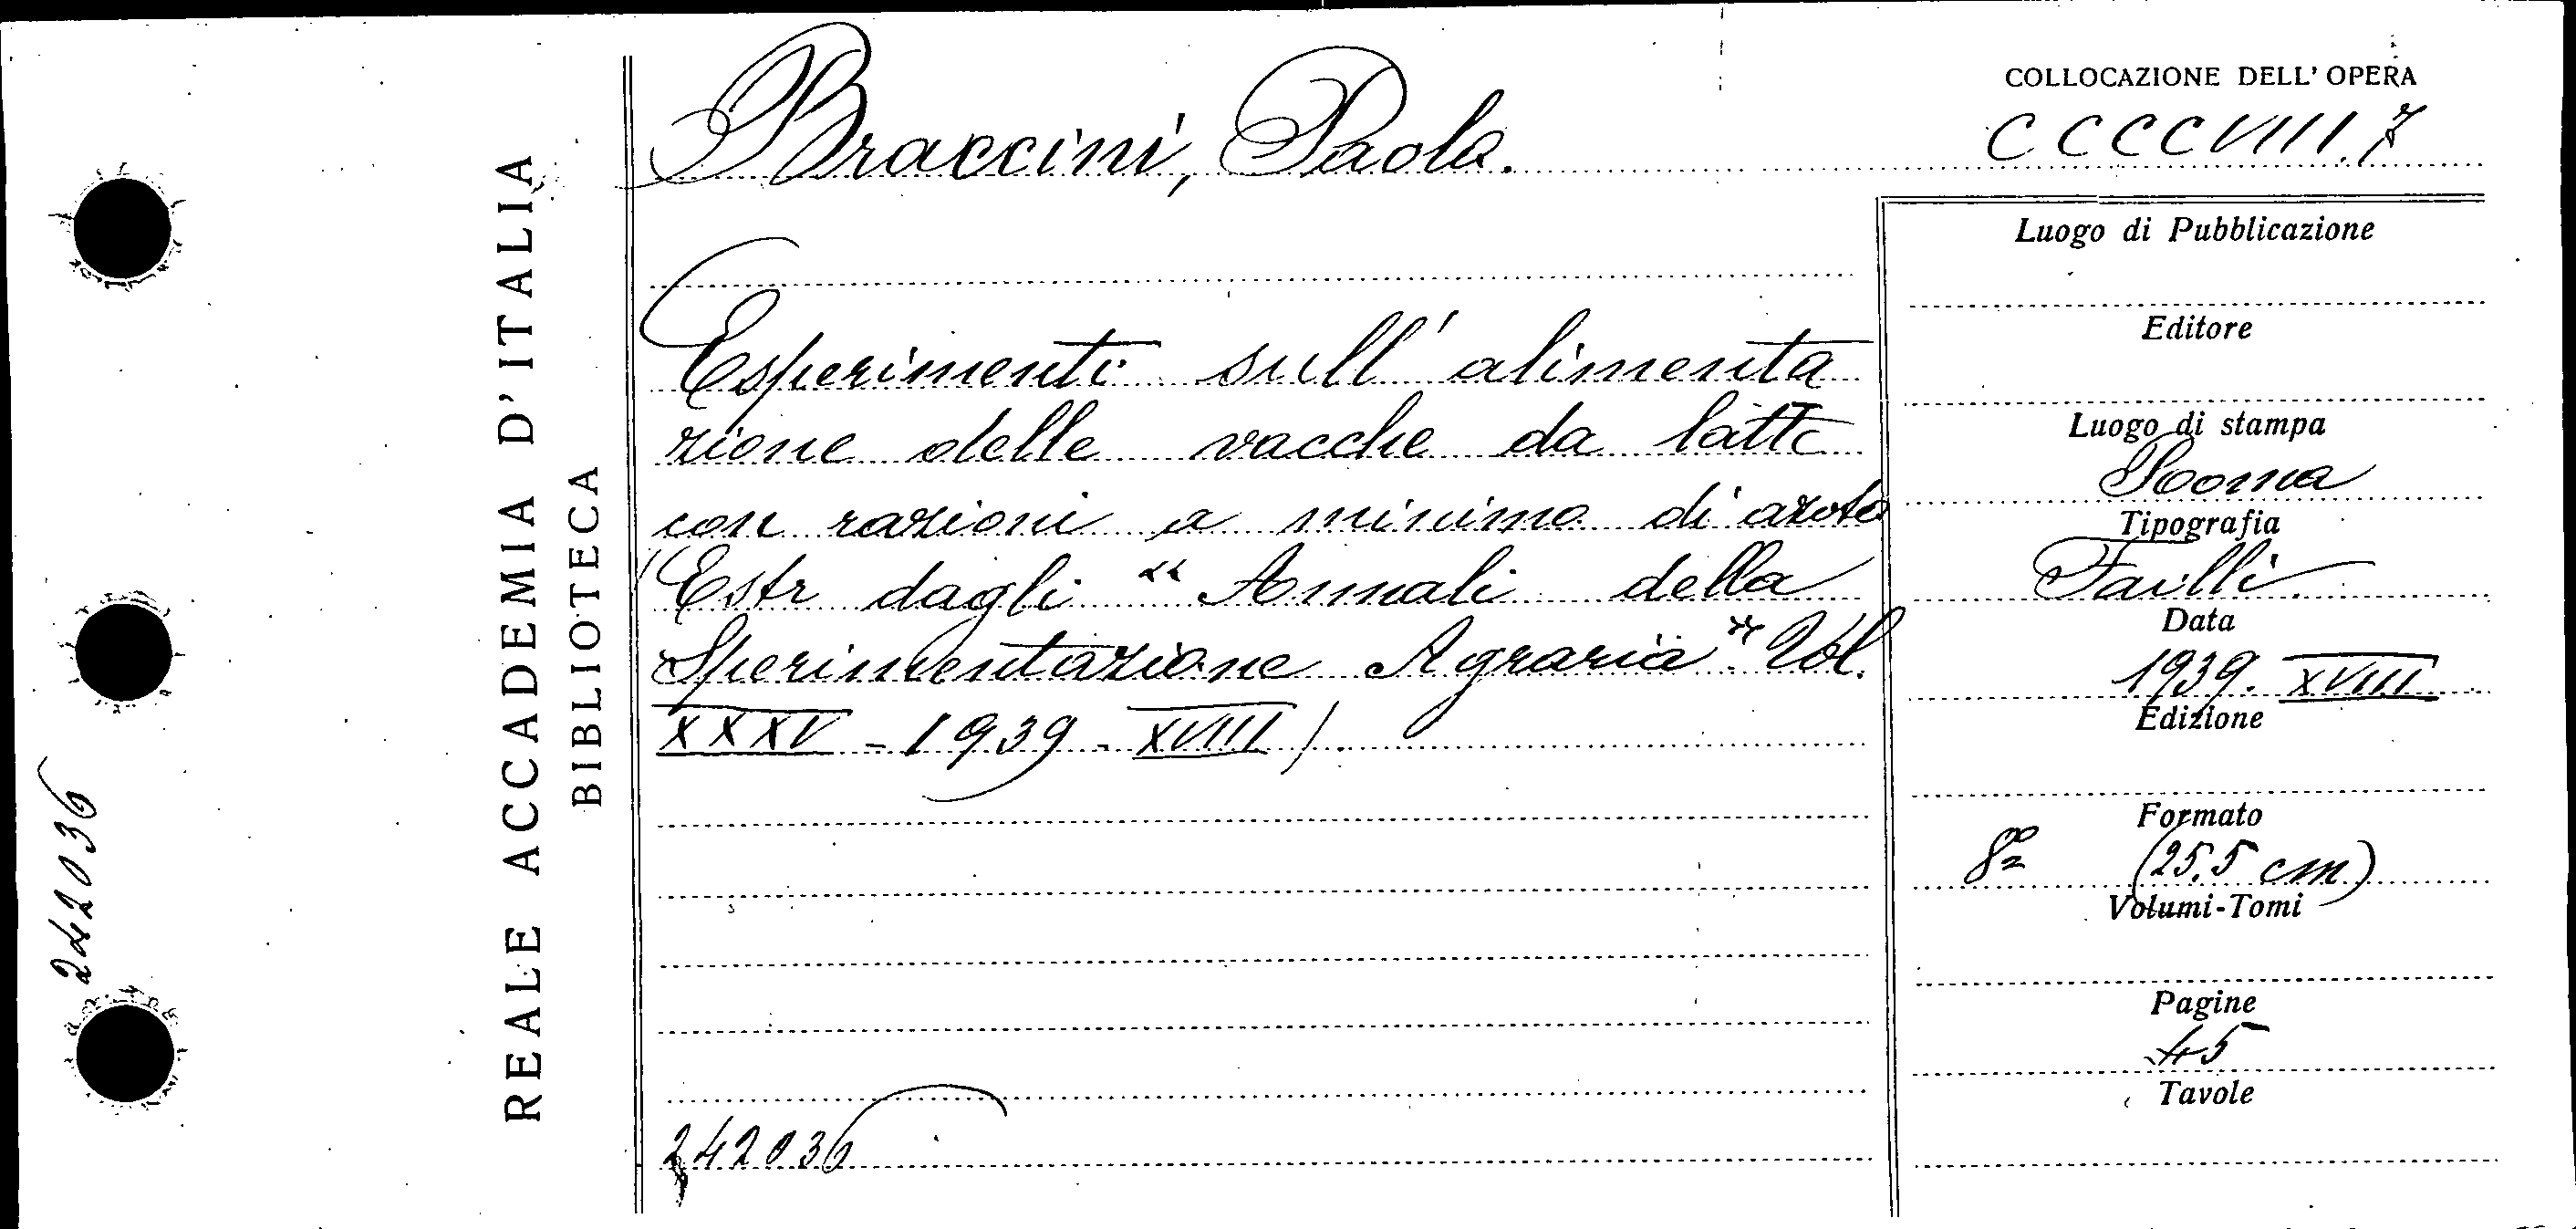 REALE ACCADEMIA D'ITALIA
BIBLIOTECA
242036
Braccini, Paola.
COLLOCAZIONE DELL' OPERA
CCCCVIII.7
Esperimenti sull' alimenta
zione delle vacche da latte
con razioni a minimo di azoto
(Estr dagli "Annali della
Sperimentazione Agraria". Vol.
XXXV - 1939 - XVIII).
242036
Luogo di Pubblicazione
Editore
Luogo di stampa
Roma
Tipografia
Failli
Data
1939. XVIII
Edizione
Formato
8º (25,5 cm)
Volumi-Tomi
Pagine
45
Tavole